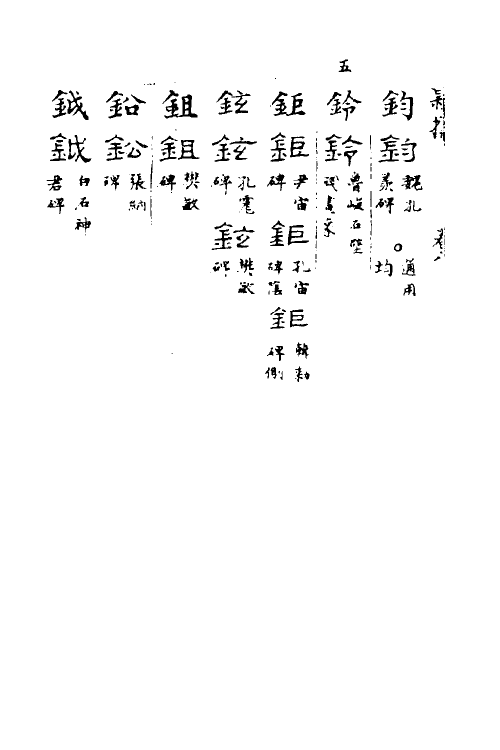 隸辨 卷八
鈞 鈞 魏孔羨碑 ○適用均
鈴 鈴 魯峻石壁
五
鉅 鉅 尹宙碑 鉅 孔宙碑陰 鉅 韓勑碑側
鉉 鉉 孔寵碑 鉉 樊敏碑
鉏 鉏 樊敏碑
鉛 鈆 張納碑
鉞 鉞 白石神君碑